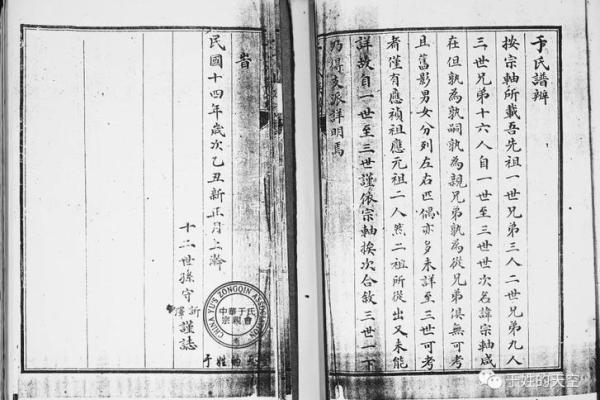 于氏譜辨
按宗軸所載吾先祖一世兄弟三人二世兄弟九人
三世兄弟十六人自一世至三世世次名諱宗軸咸
在但孰為孰嗣孰為親兄弟孰為從兄弟俱無可考
且舊影男女分列左右匹偶亦多未詳至三世可考
者僅有應禎祖應元祖二人然二祖所從出又未能
詳故自一世至三世謹依宗軸挨次合敘三世一下
乃得支派詳明焉
旹
民國十四年歲次乙丑新正月上澣
十二世孫守新謹誌
CHINA YU'S ZONGQIN ASSOCIATION
中華于氏
宗親會
于姓的天
于姓的天空